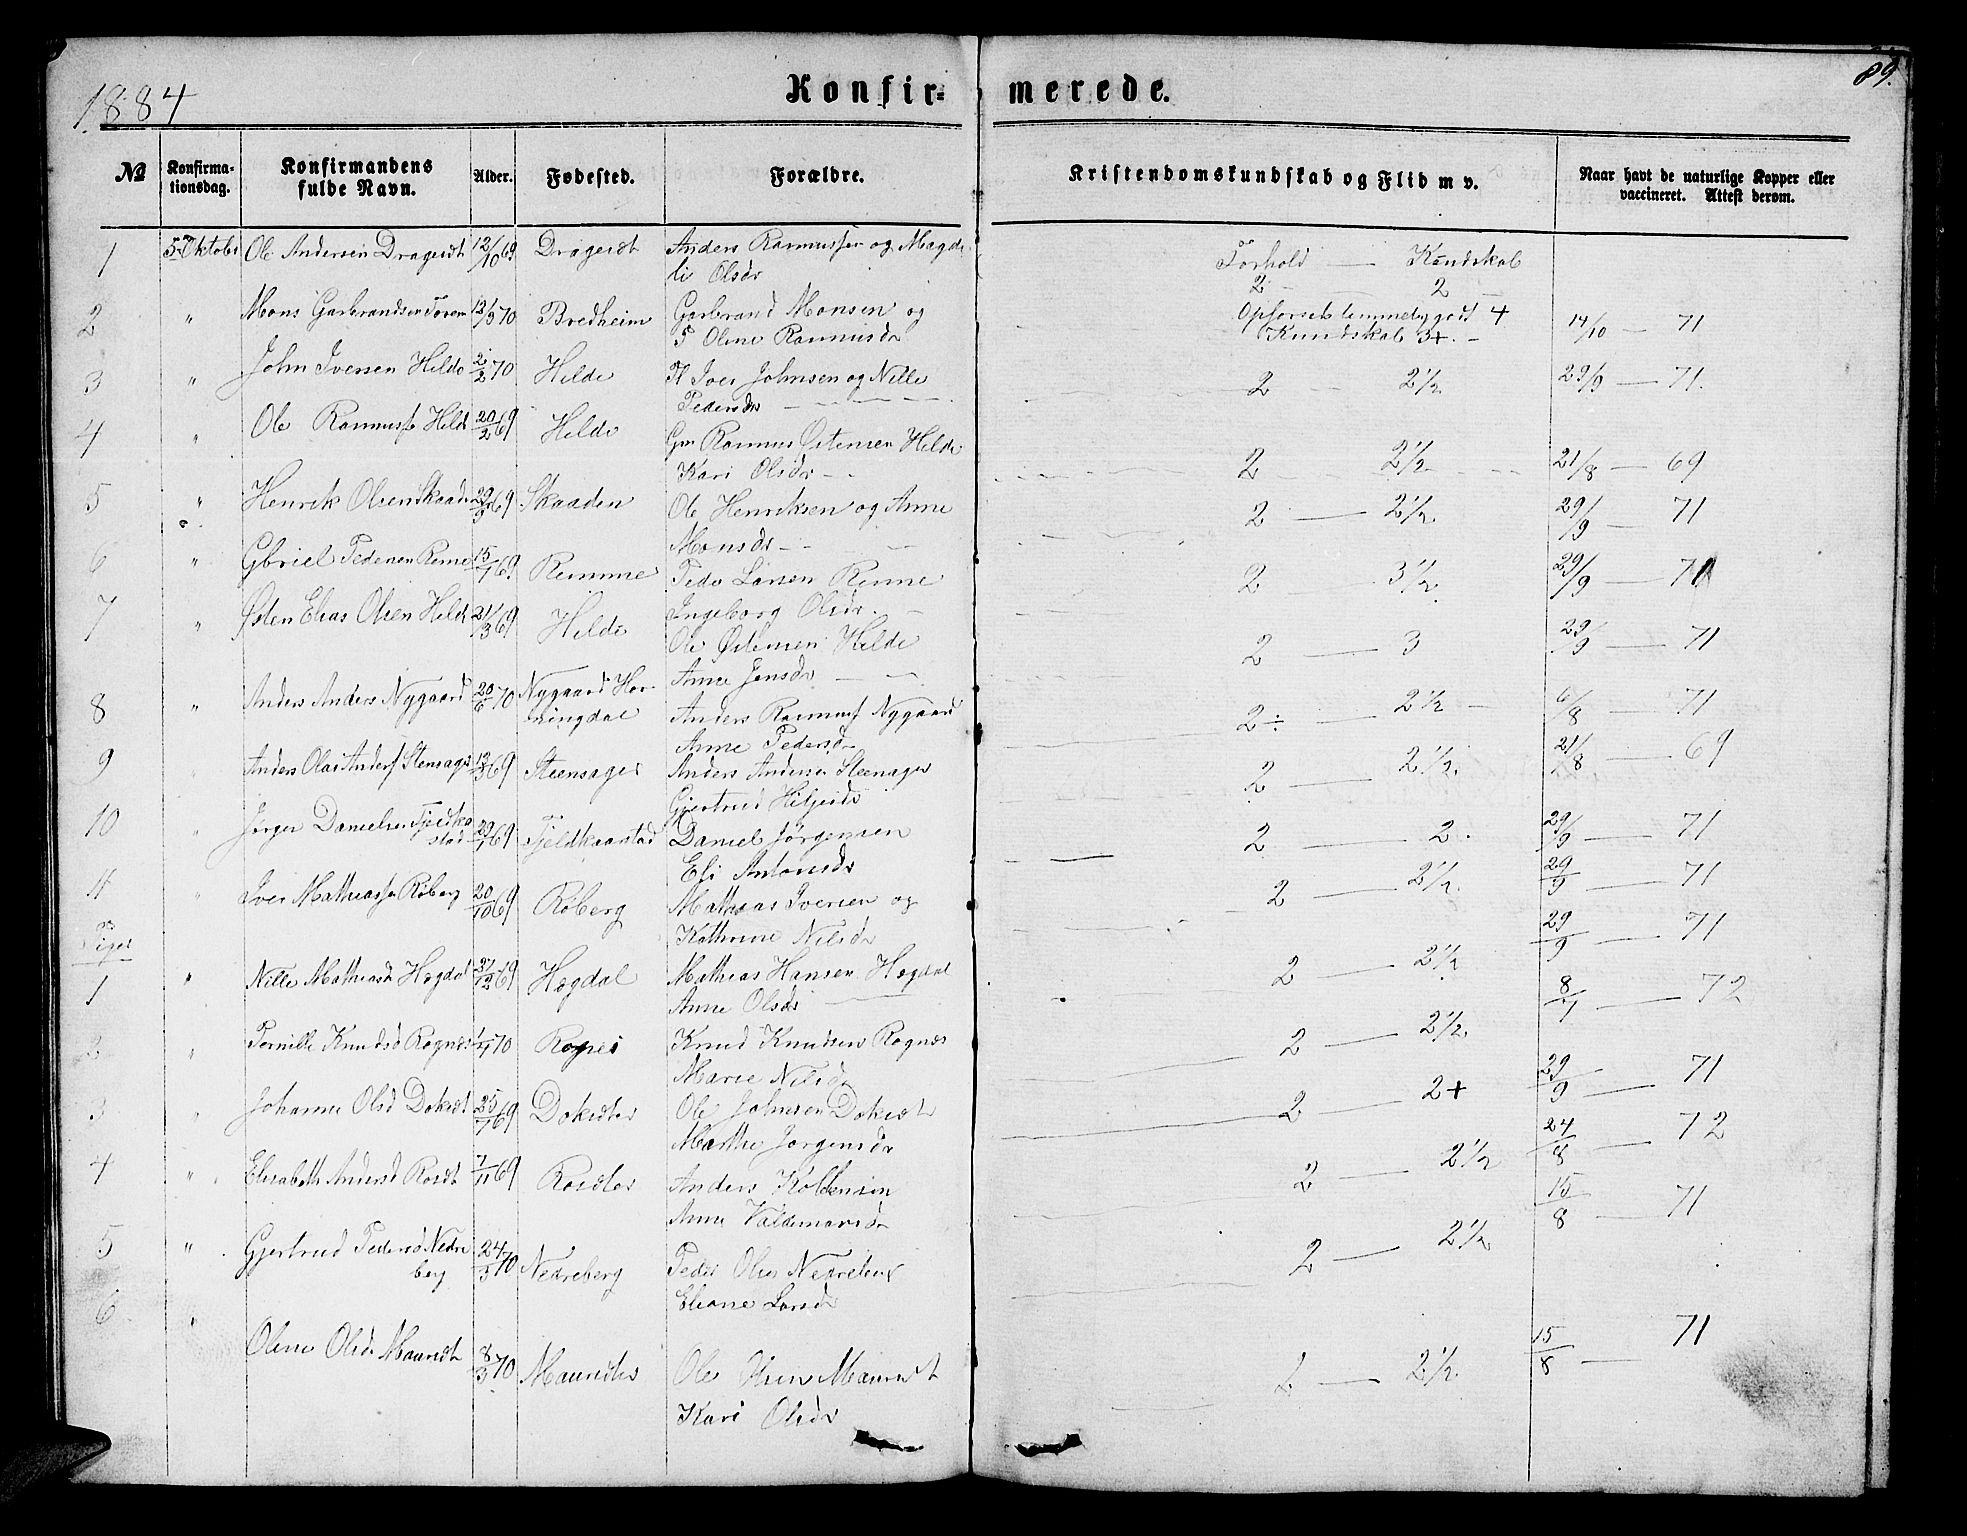 1884
Konfir-
merede.
89.
No
Konfirma-
tionsdag.
Konfirmandens
fulde Navn.
Alder.
Fødested.
Forældre.
Kristendomskundskab og Flid m v.
Naar havt de naturlige Kopper eller
vaccineret. Attest derom.
1 5 Oktober Ole Andersen 12/10 69 Anders Rasmussen og Magde
li Olsdr
Forhold — Kundskab
2 2
2 " Mons Garbrandsen 12/3 70 Bredheim Garbrand Monsen og
Oline Rasmusdr
Opførsel temmelig godt 4
Kundskab 3+. 14/10 — 71
3 " John Iversen Hilde 2/2 70 Hilde Iver Johnsen og Nille
Pedersdr
2 - 2 1/2 29/9 — 71.
4 " Ole Hilde 20/2 69 Hilde Gm Rasmus Østensen Hilde
Kari Olsdr
2 2 1/2 21/8 — 69
5 " Henrik Olsen Skaaden 29/9 69 Skaaden Ole Henriksen og Anne
Monsdr
2 — 2 1/2 29/9 — 71
6 " Gbriel Pedersen 15/1 69 Remme Peder Larsen
Ingeborg Olsdr.
2 3 1/2 29/9 — 71
7 " Østen Elias Olsen Hilde 21/3 69 Hilde Ole Østensen Hilde
Anne Jensdr
2 — 3 29/9 — 71
8 " Anders Anders Nygaard 20/6 70 Nygaard Hor-
ningdal Anders Rasmuss Nygaard
Anne Pedersdr
2÷ — 2 1/2 6/8 — 71
9 Anders Olai Anders Stensager 13/3 69 Steensager Anders Andersen Steensager
Gjertrud
2 — 2 1/2. 21/8 — 69
10 Jørgen Danielsen 29/1 69 Tjeldkaarstad Daniel Jørgensen
Eli Antonsdr
2 — 2. 29/9 — 71
11 Iver Mathiasse Røberg 20/10 69 Røberg Mathias Iversen og
Kathrine Nilsdr
2 — 2 1/2. 29/9 — 71
Piger
1 " Nille Mathiasd Høgdal 27/12 69 Høgdal Mathias Hansen Høgdal
Anne Olsdr
2 — 2 1/2 29/9 — 71
2 Pernille Knudsd Rognes 1/1 70 Knud Knudsen Rognes
Marie Nilsd
2 — 2 1/2 8/1 — 72
3 Johanne Olsd 25/1 69 Ole Johnsen
Marthe Jørgensdr
2 — 2+ 29/9 — 71
4 Elisabeth Andersd 7/11 69 Anders
Anne Valdemarsdr
2 — 2 1/2 24/8 — 72
5 " Gjertrud Pedersd Nedre
berg 24/3 70 Nedreberg Peder Olsen Nedreberg
Eliane Larsdr
2 — 2 1/2 15/8 — 71
6 " Oline Olsdr 8/3 70 Ole
Kari Olsdr
2 — 2 1/2. 15/8 — 71